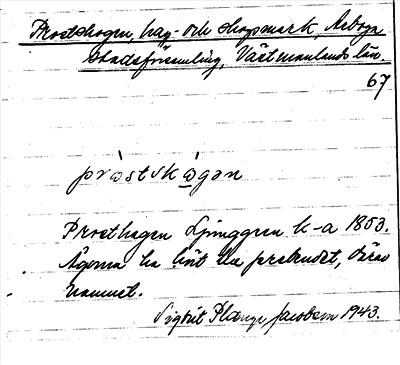 Prostskogen, hag- och skogsmark, Arboga
stadsförsamling, Västmanlands län.
67
pròstskògən
Prosthagen Ljunggren k-a 1853.
Ägorna ha hört till prebendet, därav
namnet.
Sigbrit Plænge Jacobson 1943.